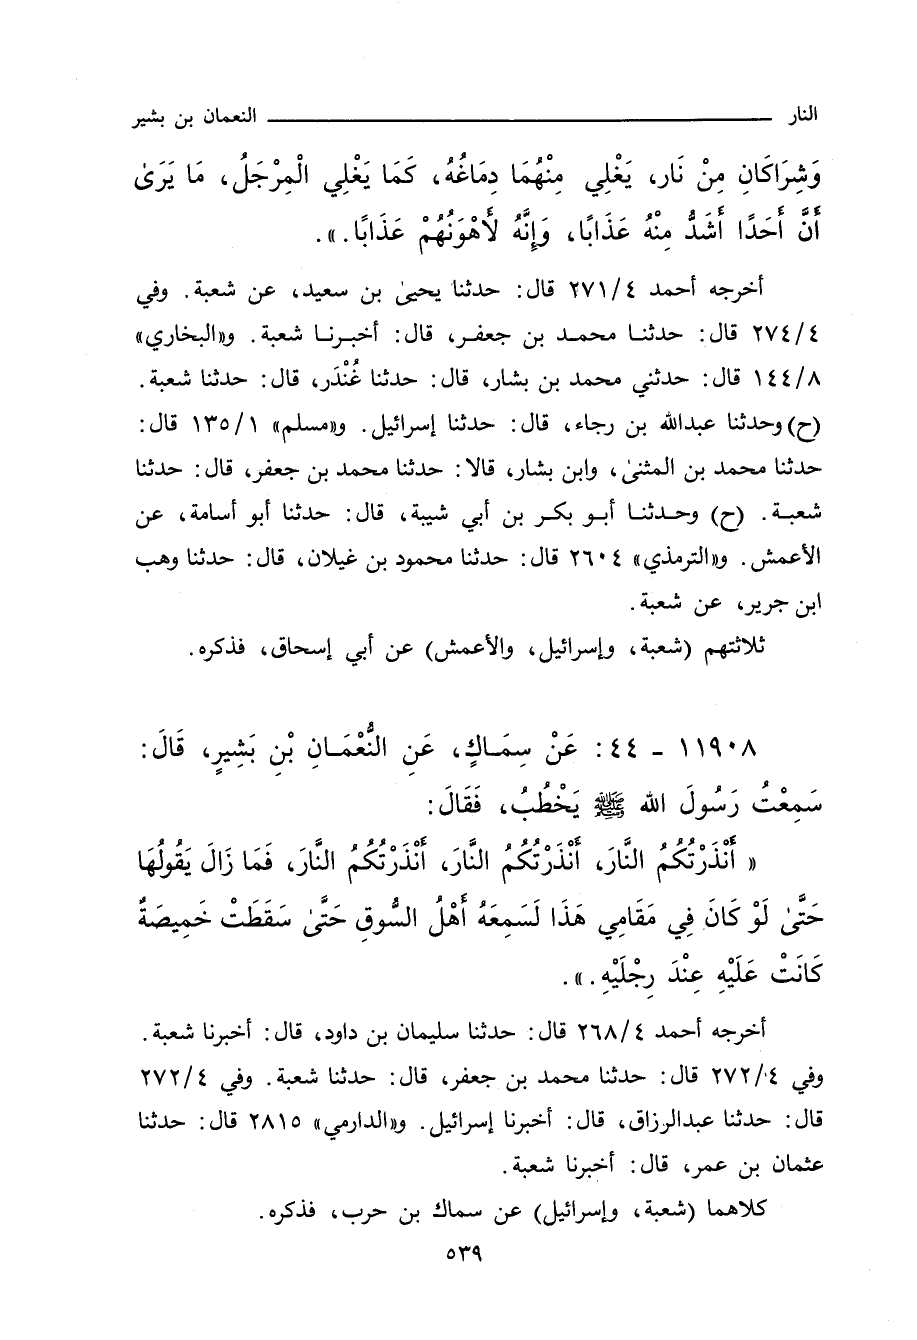 النار ــــــــــ النعمان بن بشير
وَشِرَاكَانِ مِنْ نَارٍ، يَغْلِي مِنْهُمَا دِمَاغُهُ، كَمَا يَغْلِي الْمِرْجَلُ، مَا يَرَىٰ
أَنَّ أَحَدًا أَشَدُّ مِنْهُ عَذَابًا، وَإِنَّهُ لأَهْوَنُهُمْ عَذَابًا.».
أخرجه أحمد ٢٧١/٤ قال: حدثنا يحيىٰ بن سعيد، عن شعبة. وفي
٢٧٤/٤ قال: حدثنا محمد بن جعفر، قال: أخبرنا شعبة. و«البخاري»
١٤٤/٨ قال: حدثني محمد بن بشار، قال: حدثنا غُنْدَر، قال: حدثنا شعبة.
(ح) وحدثنا عبدالله بن رجاء، قال: حدثنا إسرائيل. و«مسلم» ١٣٥/١ قال:
حدثنا محمد بن المثنىٰ، وابن بشار، قالا: حدثنا محمد بن جعفر، قال: حدثنا
شعبة. (ح) وحدثنا أبو بكر بن أبي شيبة، قال: حدثنا أبو أسامة، عن
الأعمش. و«الترمذي» ٢٦٠٤ قال: حدثنا محمود بن غيلان، قال: حدثنا وهب
ابن جرير، عن شعبة.
ثلاثتهم (شعبة، وإسرائيل، والأعمش) عن أبي إسحاق، فذكره.
١١٩٠٨ - ٤٤: عَنْ سِمَاكٍ، عَنِ النُّعْمَانِ بْنِ بَشِيرٍ، قَالَ:
سَمِعْتُ رَسُولَ الله ﷺ يَخْطُبُ، فَقَالَ:
« أَنْذَرْتُكُمُ النَّارَ، أَنْذَرْتُكُمُ النَّارَ، أَنْذَرْتُكُمُ النَّارَ، فَمَا زَالَ يَقُولُهَا
حَتَّىٰ لَوْ كَانَ فِي مَقَامِي هَذَا لَسَمِعَهُ أَهْلُ السُّوقِ حَتَّىٰ سَقَطَتْ خَمِيصَةٌ
كَانَتْ عَلَيْهِ عِنْدَ رِجْلَيْهِ.».
أخرجه أحمد ٢٦٨/٤ قال: حدثنا سليمان بن داود، قال: أخبرنا شعبة.
وفي ٢٧٢/٤ قال: حدثنا محمد بن جعفر، قال: حدثنا شعبة. وفي ٢٧٢/٤
قال: حدثنا عبدالرزاق، قال: أخبرنا إسرائيل. و«الدارمي» ٢٨١٥ قال: حدثنا
عثمان بن عمر، قال: أخبرنا شعبة.
كلاهما (شعبة، وإسرائيل) عن سماك بن حرب، فذكره.
٥٣٩